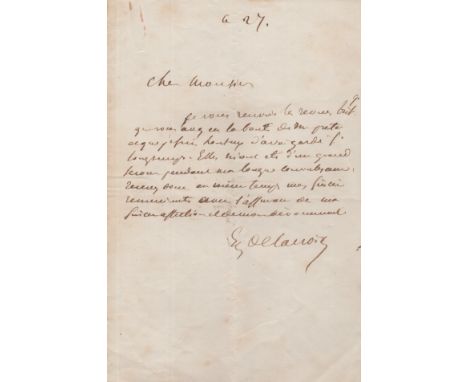 a 27.
Cher Monsieur
je vous renvoie les revues
que vous avez eu la bonté de me prêter
et que je suis honteux d'avoir gardé si
longtemps. Elles m'ont été d'un grand
secours pendant ma longue convalescence.
Recevez donc en même temps mes sincères
remerciements avec l'assurance de ma
sincère affection et de mon dévouement
Eug Delacroix